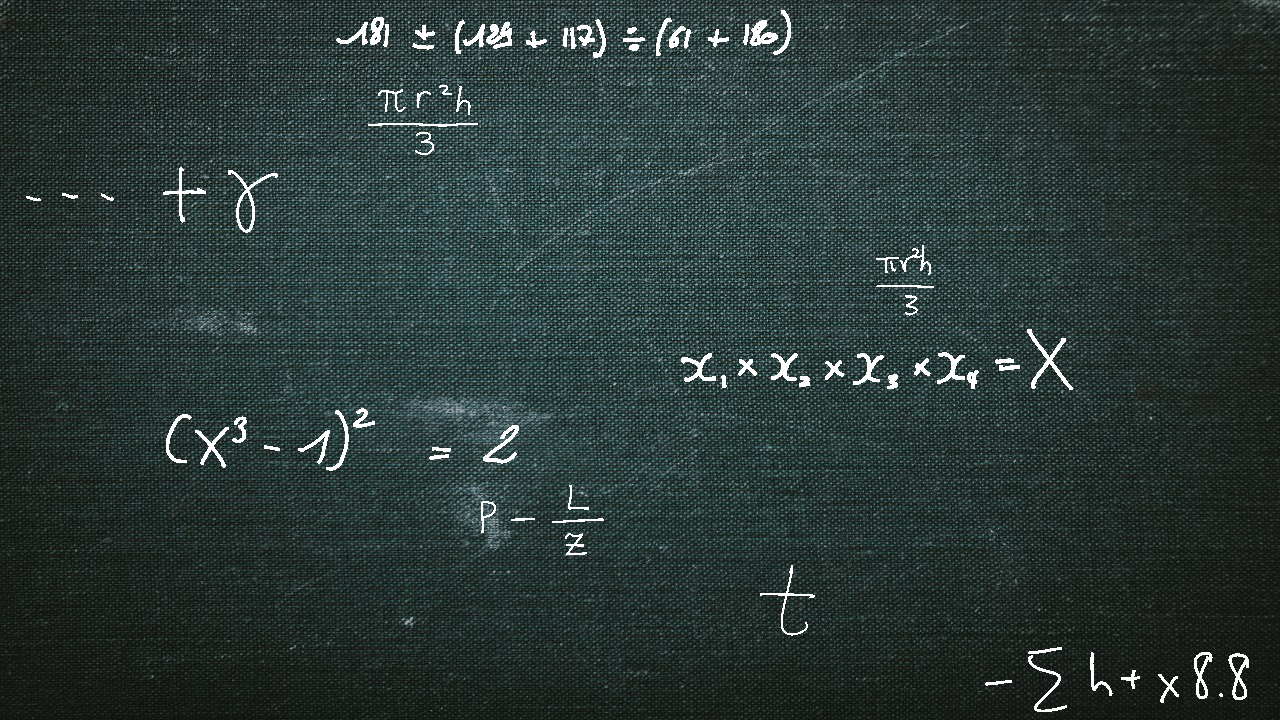 181 ± (129 + 117) ÷ (61 + 180)
πr²h/3
--- + γ
πr²h/3
x₁ × x₂ × x₃ × x₄ = X
(x³ - 1)² = 2
P - L/z
t
- ∑ h + x 8.8